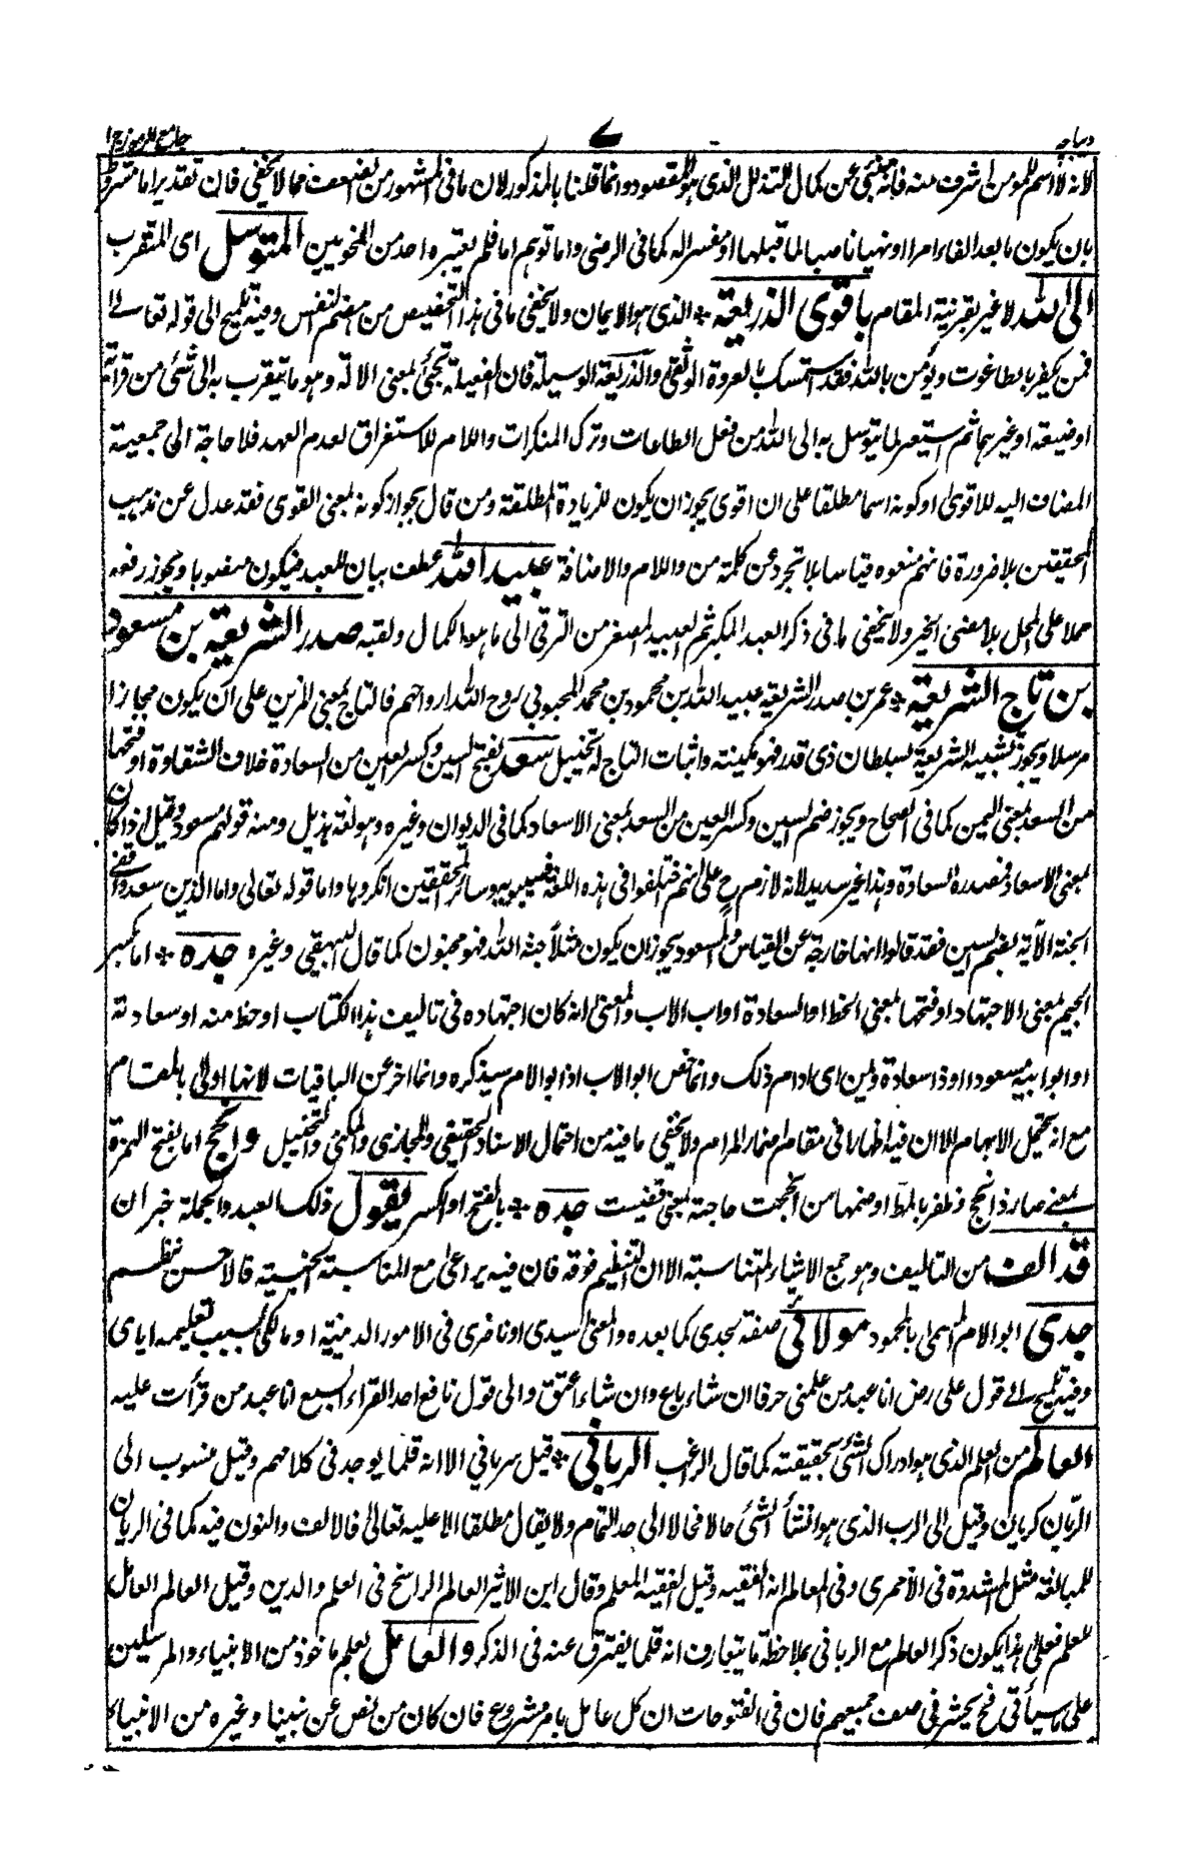 ديباجه ٧ جامع الرموز ج ١
لانه لا اسم للمومن اشرف منه فانه منبئ عن كمال التذلل الذى هو المقصود وانما قلنا بالمذكور لان ما فى المشهور من الضعف مما لا يخفى فان تقدير اما مشروط
بان يكون ما بعد الفاء امرا او نهيا ناصبا لما قبلها او مفسرا له كما فى الرضى واما توهم اما فلم يعتبره واحد من النحويين المتوسل اى المتقرب
الى الله لا غير بقرينة المقام باقوى الذريعة * الذى هو الايمان ولا يخفى ما فى هذا التخصيص من هضم النفس وفيه تلميح الى قوله تعالى
فمن يكفر بالطاغوت ويؤمن بالله فقد استمسك بالعروة الوثقى والذريعة الوسيلة فان الفعيلة تجئ بمعنى الالة وهو ما يتقرب به الى شئ من قرابة
او ضيعة او غيرهما ثم استعير لما يتوسل به الى الله من فعل الطاعات وترك المنكرات واللام للاستغراق لعدم العهد فلا حاجة الى جمعية
المضاف اليه للاقوى او كونه اسما مطلقا على ان اقوى يجوز ان يكون للزيادة المطلقة ومن قال بجواز كونه بمعنى القوى فقد عدل عن مذهب
المحققين بلا ضرورة فانهم منعوه قياسا بلا تجرد عن كلمة من واللام والاضافة عبيد الله عطف بيان للعبد فيكون منصوبا ويجوز رفعه
حملا على المحل بلا مضى الخبر ولا يخفى ما فى ذكر العبد المكبر ثم العبيد المصغر من الترقى الى ما هو الكمال ولقبه صدر الشريعة بن مسعود
بن تاج الشريعة * عمر بن صدر الشريعة عبيد الله بن محمود بن محمد المحبوبي روح الله ارواحهم فالتاج بمعنى المزين على ان يكون مجازا
مرسلا ويجوز تشبيه الشريعة بسلطان ذى قدر فهو مكنية واثبات التاج له تخييل سعد بفتح السين وكسر العين من السعادة خلاف الشقاوة او فتحها
من السعد بمعنى اليمن كما فى الصحاح ويجوز ضم السين وكسر العين من السعد بمعنى الاسعاد كما فى الديوان وغيره وهو لغة هذيل ومنه قولهم مسعود وقيل اذا كان
بمعنى الاسعاد فمصدره السعادة وهذا غير سديد لانه لازم ح على انهم اختلفوا فى هذه اللغة فسيبويه وسائر المحققين انكروها واما قوله تعالى واما الذين سعدوا ففى
الجنة الآية بضم السين فقد قالوا انها خارجة عن القياس والمسعود يجوز ان يكون مثل أجنه الله فهو مجنون كما قال البيهقى وغيره جده * اما بكسر
الجيم بمعنى الاجتهاد او فتحها بمعنى الحظ او السعادة او اب الاب والمعنى انه كان اجتهاده فى تاليف هذا الكتاب او حظ منه او سعادته
او ابو ابيه مسعودا او ذا سعادة ويمن اى ادام ذلك وانما خص ابو الاب اذ ابو الام سيذكره وانما اخر عن الباقيات لانها اولى بالمقام
مع انه يحتمل الابهام الا ان فيه اظهارا فى مقام اضمار المرام ولا يخفى ما فيه من احتمال الاسناد الحقيقى والمجازى والمكنى والتخييل وانجح اما بفتح الهمزة
بمعنى صار ذا نجح وظفر بالمط او ضمها من انجحت حاجته بمعنى قضيت جده * بالفتح او الكسر يقول ذلك العبد والجملة خبر ان
قد الف من التاليف وهو جمع الاشياء المتناسبة الا ان التنظيم فوقه فان فيه يراعى مع المناسبة الجنسية فالاحسن نظم
جدى ابو الام المسمى بالمحمود مولائي صفة لجدى كما بعده والمعنى لسيدى او ناصرى فى الامور الدينية او مالكى بسبب تعليمه اياى
وفيه تلميح الى قول على رض انا عبد من علمنى حرفا ان شاء باع وان شاء اعتق والى قول نافع احد القراء السبع انا عبد من قرأت عليه
العالم من العلم الذى هو ادراك الشئ بحقيقته كما قال الراغب الربانى * قيل سرياني الا انه قلما يوجد فى كلامهم وقيل منسوب الى
الربّان كريان وقيل الى الرب الذى هو انشأ الشئ حالا فحالا الى حد التمام ولا يقال مطلقا الا عليه تعالى فالالف والنون فيه كما فى الريان
للمبالغة مثل المشددة فى الأحمرى وفى المعالم انه الفقيه وقيل الفقيه المعلم وقال ابن الاثير العالم الراسخ فى العلم والدين وقيل العالم العامل
المعلم فعلى هذا يكون ذكر العالم مع الربانى بملاحظة ما يتعارف انه قلما يفترق عنه فى الذكر والعامل بعلم ماخوذ من الانبياء والمرسلين
على ما سيأتى فح يحشر فى صف جميعهم فان فى الفتوحات ان كل عامل بامر مشروع فان كان من نص عن نبينا وغيره من الانبياء